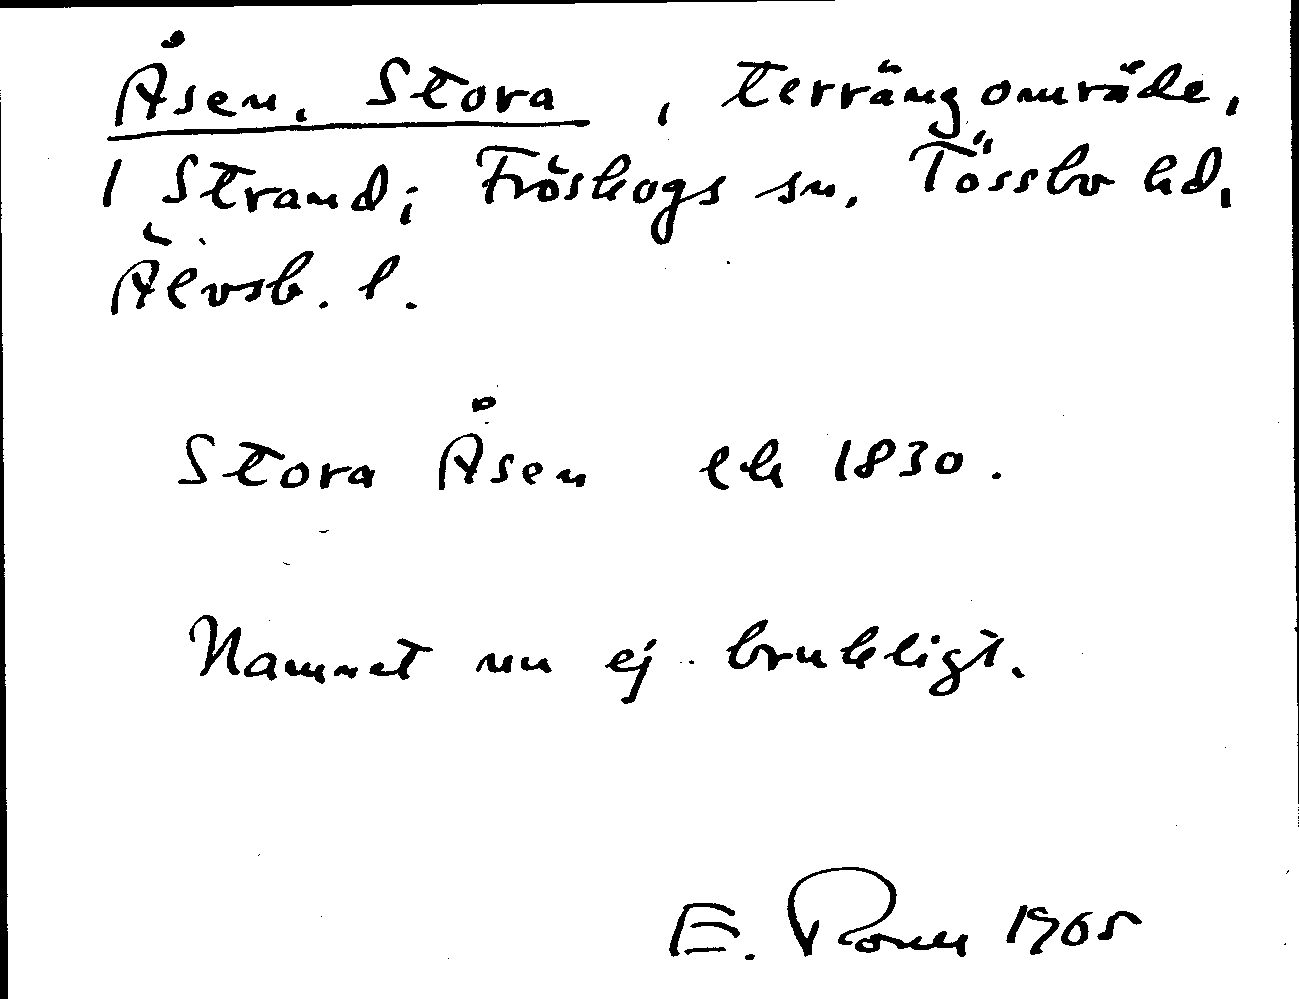 Åsen, Stora, terrängområde,
1 Strand; Fröskogs sn, Tössbo hd,
Älvsb. l.
Stora Åsen ek 1830.
Namnet nu ej brukligt.
E. 1965